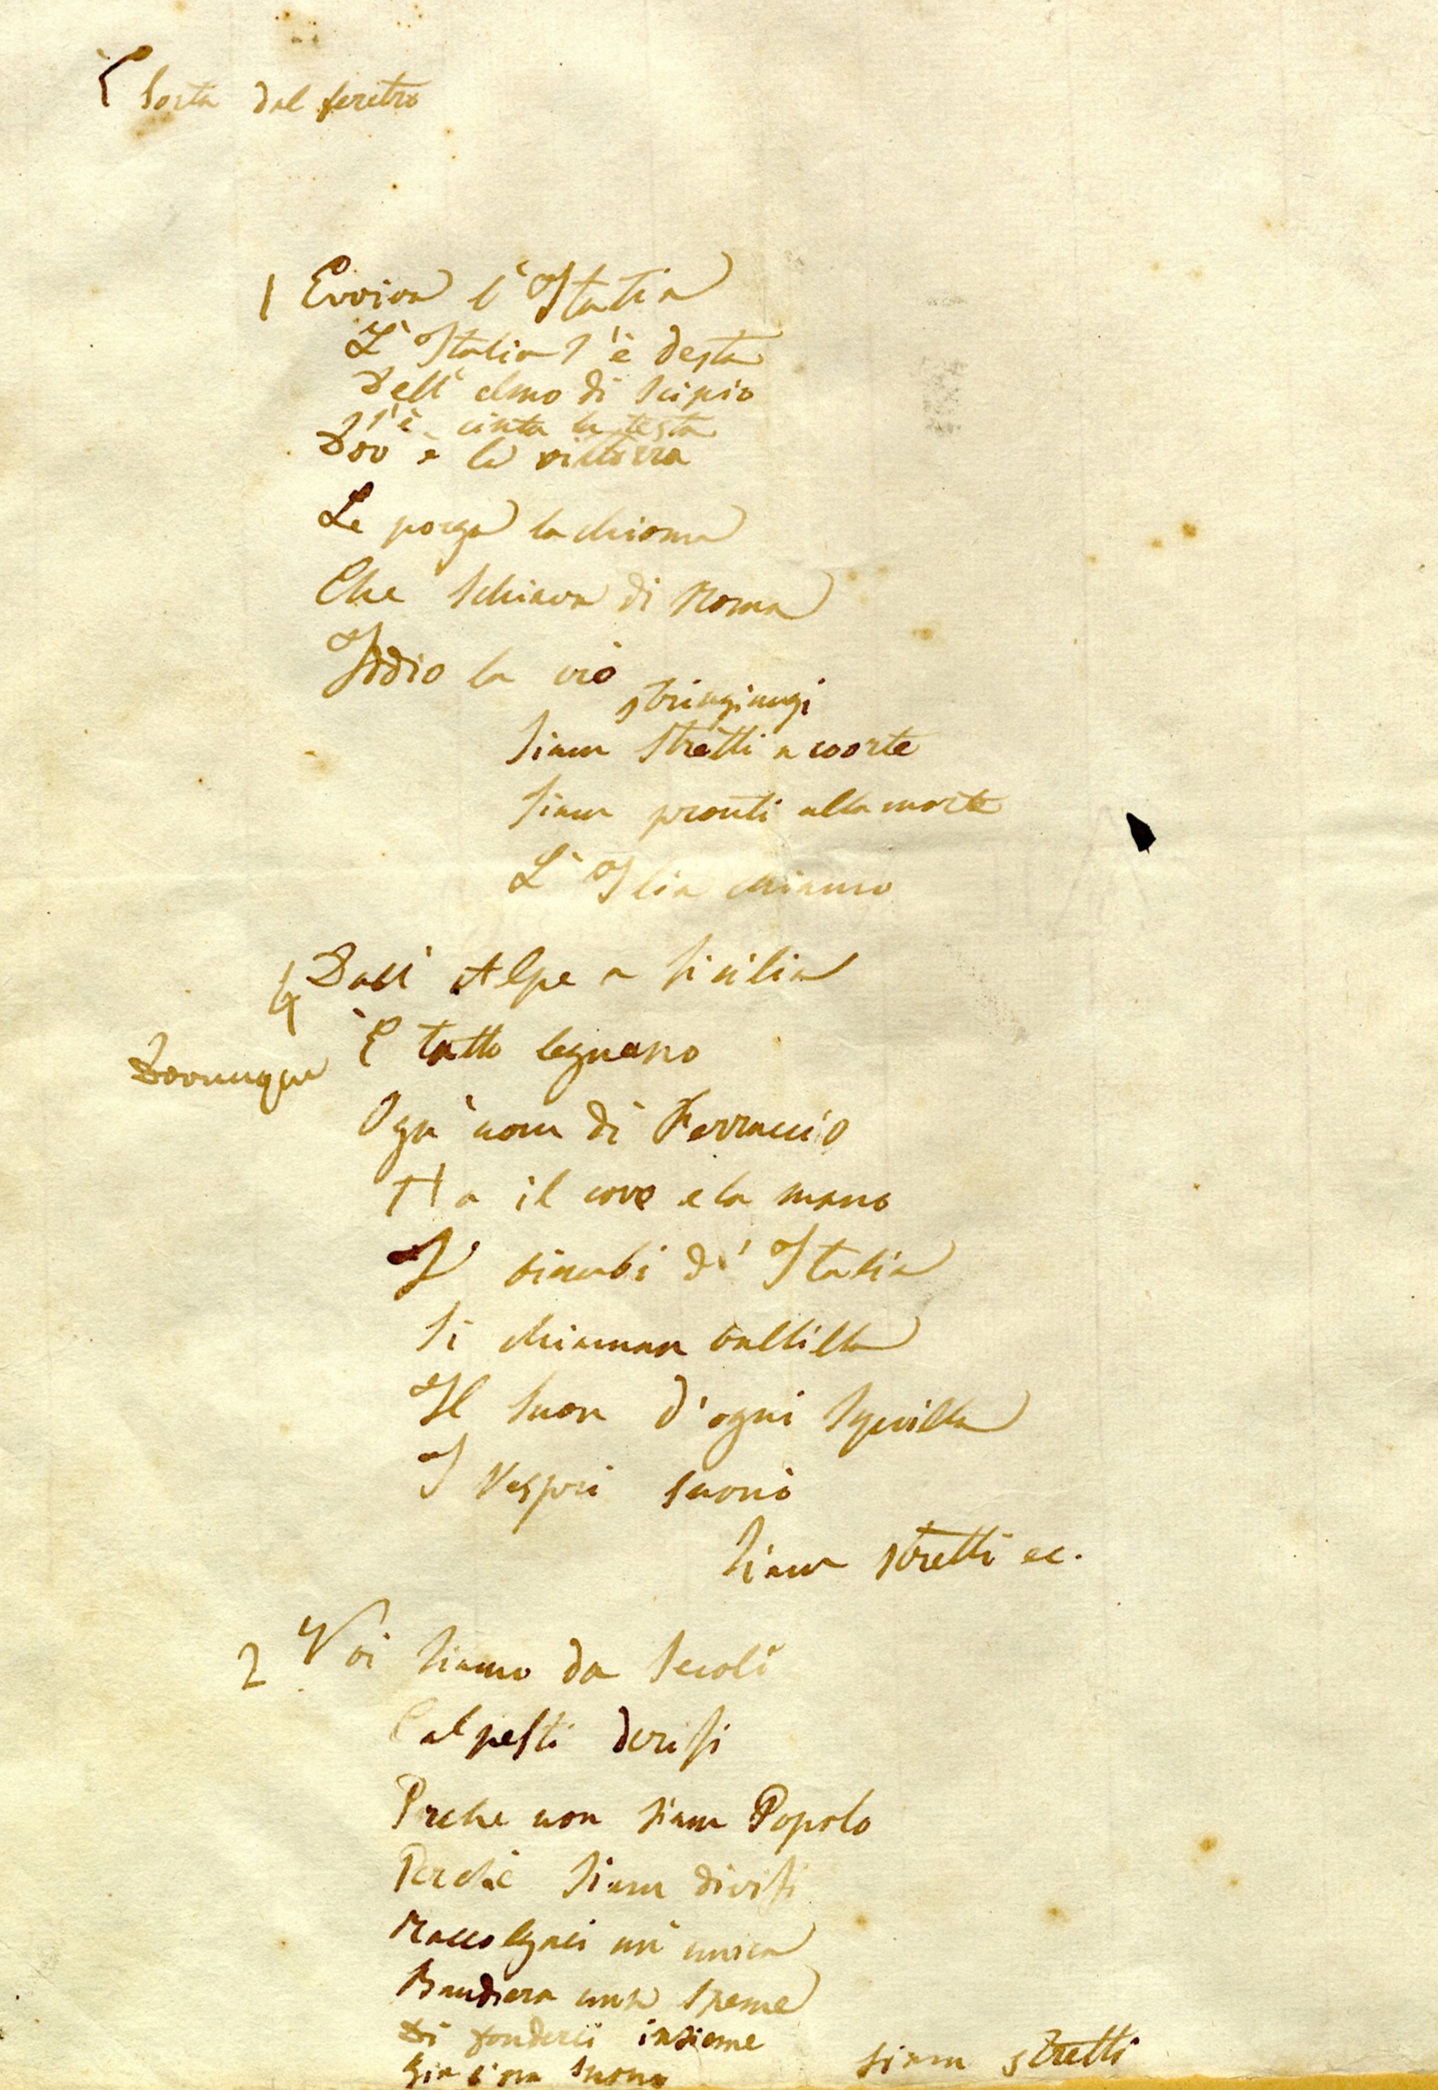 È sorta dal feretro
1 Evviva l'Italia
L'Italia s'è desta
Dell'elmo di Scipio
S'è cinta la testa
Dov'è la vittoria
Le porga la chioma
Che schiava di Roma
Iddio la creò
stringiamgi
Siam stretti a coorte
Siam pronti alla morte
L'Ilia chiamò
4 Dall'Alpe a Sicilia
Dovunque È tutto legnano
Ogn'uom di Ferruccio
Ha il core e la mano
I bimbi d'Italia
Si chiaman Balilla
Il suon d'ogni squilla
I Vespri suonò
Siam stretti ec.
2 Noi siamo da secoli
Calpesti derisi
Perche non siam Popolo
Perchè siam divisi
Raccolgaci un'unica
Bandiera una speme
Di fonderci insieme
Già l'ora suonò siam stretti